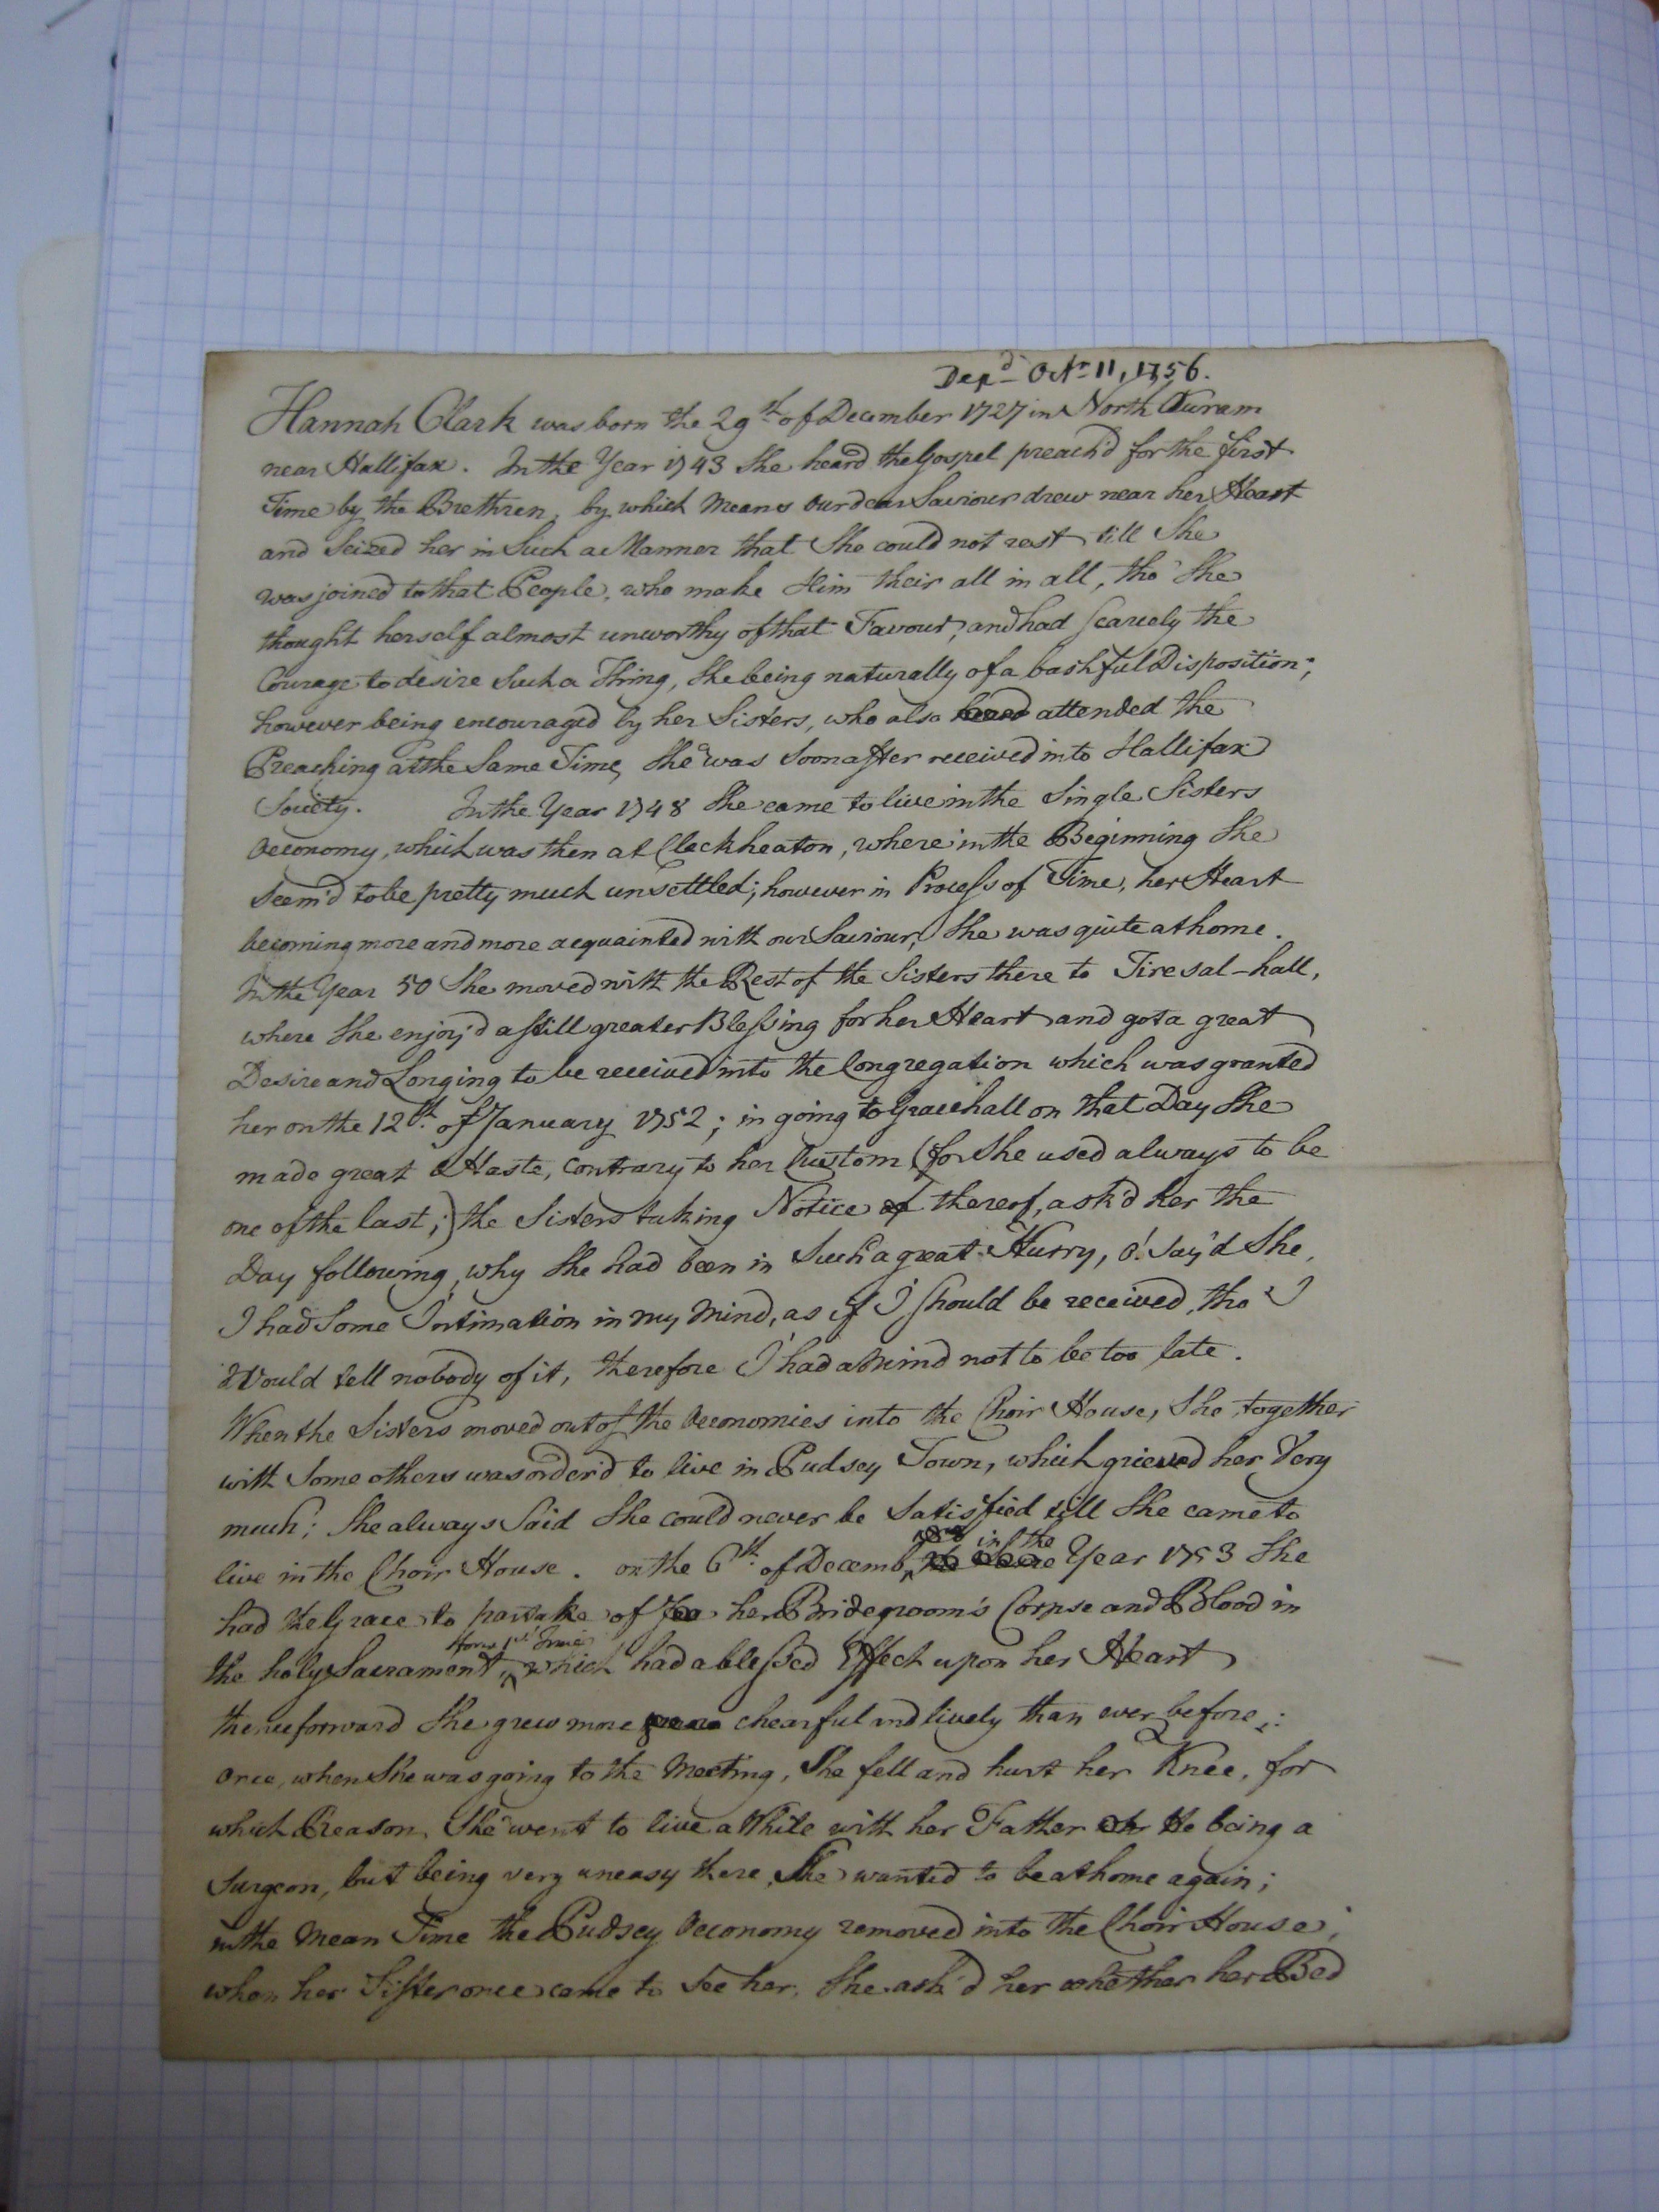 Depd Octr 11, 1756.
Hannah Clark was born the 29th of December 1727 in North Ouram
near Hallifax. In the Year 1743 She heard the Gospel preach'd for the first
Time by the Brethren, by which Means our dear Saviour drew near her Heart
and Seized her in Such a Manner that She could not rest till She
was joined to that People, who make Him their all in all, tho' She
thought herself almost unworthy of that Favour, and had scarcely the
Courage to desire Such a Thing, She being naturally of a bashful Disposition;
however being encouraged by her Sisters, who also attended the
Preaching at the Same Time, She was Soon after received into Hallifax
Society. In the Year 1748 She came to live in the Single Sisters
Oeconomy, which was then at Cleckheaton, where in the Beginning She
Seem'd to be pretty much unsettled; however in Process of Time, her Heart
becoming more and more acquainted with our Saviour, She was quite at home.
In the Year 50 She moved with the Rest of the Sisters there to Tiresal-hall,
where She enjoy'd a still greater Blessing for her Heart and got a great
Desire and Longing to be received into the Congregation which was granted
her on the 12th of January 1752; in going to Gracehall on that Day She
made great Haste, contrary to her Custom (for She used always to be
one of the last;) the Sisters taking Notice of thereof, ask'd her the
Day following, why She had been in Such a great Hurry, o! Say'd She,
I had Some Intimation in my Mind, as if I should be received, tho' I
Would tell nobody of it, therefore I had a Mind not to be too late.
When the Sisters moved out of the Oeconomies into the Choir House, She together
with Some others was order'd to live in Pudsey Town, which grieved her Very
much; She always Said She could never be Satisfied till She came to
live in the Choir House. on the 6th of Decemb, in the Year 1753 She
had the Grace to partake of her Bridegroom's Corpse and Blood in
the holy Sacrament, 1st Time which had a blessed Effect upon her Heart
thenceforward She grew more chearful and lively than ever before;
Once, when She was going to the Meeting, She fell and hurt her Knee, for
which Reason, She went to live a While with her Father He being a
Surgeon, but being very uneasy there, She wanted to be at home again;
in the Mean Time the Pudsey Oeconomy removed into the Choir House;
when her Sister once came to See her, She ask'd her whether her Bed